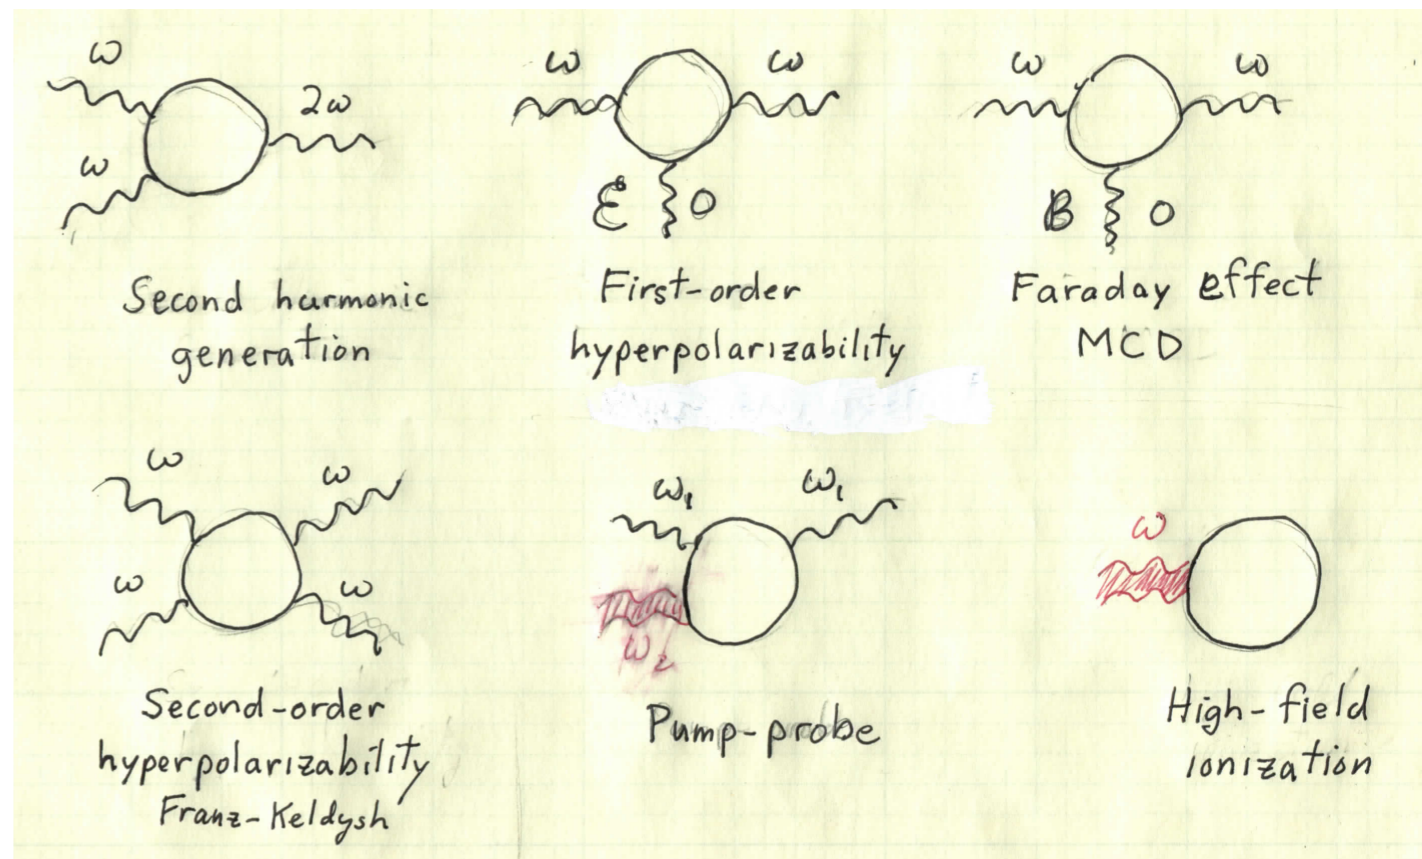 ω
2ω
ω
Second harmonic
generation
ω
ω
Ɛ 0
First-order
hyperpolarizability
ω
ω
B 0
Faraday effect
MCD
ω
ω
ω
ω
Second-order
hyperpolarizability
Franz-Keldysh
ω₁
ω₁
ω₂
Pump-probe
ω
High-field
ionization